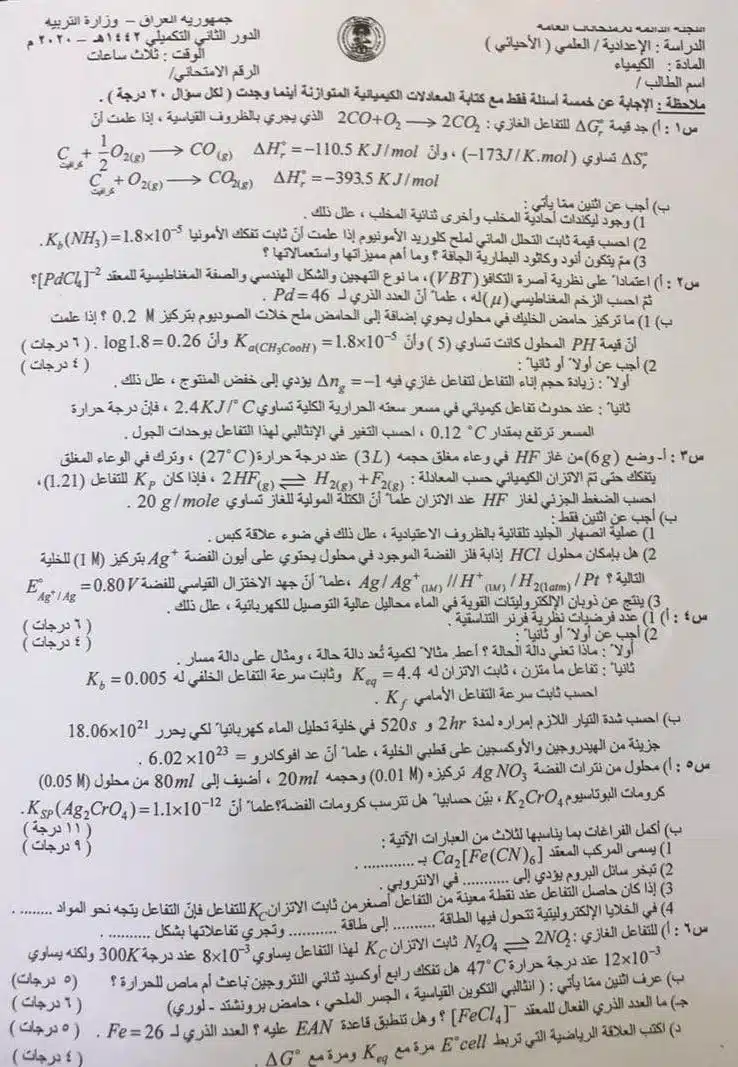 جمهورية العراق – وزارة التربية
اللجنة الدائمة للامتحانات العامة
الدور الثاني التكميلي ١٤٤٢هـ – ٢٠٢٠ م
الدراسة : الإعدادية / العلمي ( الأحيائي )
الوقت : ثلاث ساعات
المادة : الكيمياء
الرقم الامتحاني/
اسم الطالب /
ملاحظة : الإجابة عن خمسة أسئلة فقط مع كتابة المعادلات الكيميائية المتوازنة أينما وجدت ( لكل سؤال ٢٠ درجة ) .
س١ : أ) جد قيمة ΔG°r للتفاعل الغازي : 2CO+O₂ ⟶ 2CO₂ الذي يجري بالظروف القياسية ، إذا علمت أنّ
ΔS°r تساوي (−173J/K.mol) ، وأنّ C كرافيت + 1/2 O₂(g) ⟶ CO(g) ΔH°r = −110.5 KJ/mol
C كرافيت + O₂(g) ⟶ CO₂(g) ΔH°r = −393.5 KJ/mol
ب) أجب عن اثنين ممّا يأتي :
1) وجود ليكندات أحادية المخلب وأخرى ثنائية المخلب ، علل ذلك .
2) احسب قيمة ثابت التحلل المائي لملح كلوريد الأمونيوم إذا علمت أنّ ثابت تفكك الأمونيا Kb(NH₃)=1.8×10⁻⁵ .
3) ممّ يتكون أنود وكاثود البطارية الجافة ؟ وما أهم مميزاتها واستعمالاتها ؟
س٢ : أ) اعتماداً على نظرية آصرة التكافؤ (VBT) ، ما نوع التهجين والشكل الهندسي والصفة المغناطيسية للمعقد [PdCl₄]⁻² ؟
ثم احسب الزخم المغناطيسي (μ) له ، علماً أنّ العدد الذري لـ Pd = 46 .
ب) 1) ما تركيز حامض الخليك في محلول يحوي إضافة إلى الحامض ملح خلات الصوديوم بتركيز 0.2 M ؟ إذا علمت
أنّ قيمة PH المحلول كانت تساوي (5) وأنّ Ka(CH₃CooH) = 1.8×10⁻⁵ وأنّ log1.8 = 0.26 . ( ٦ درجات )
2) أجب عن أولاً أو ثانياً : ( ٤ درجات )
أولاً : زيادة حجم إناء التفاعل لتفاعل غازي فيه Δng = −1 يؤدي إلى خفض المنتوج ، علل ذلك .
ثانياً : عند حدوث تفاعل كيميائي في مسعر سعته الحرارية الكلية تساوي 2.4KJ/°C ، فإنّ درجة حرارة
المسعر ترتفع بمقدار 0.12 °C ، احسب التغير في الإنثالبي لهذا التفاعل بوحدات الجول .
س٣ : أ- وضع (6g) من غاز HF في وعاء مغلق حجمه (3L) عند درجة حرارة (27°C) ، وترك في الوعاء المغلق
يتفكك حتى تمّ الاتزان الكيميائي حسب المعادلة : 2HF(g) ⇌ H₂(g) + F₂(g) ، فإذا كان Kp للتفاعل (1.21) ،
احسب الضغط الجزئي لغاز HF عند الاتزان علماً أنّ الكتلة المولية للغاز تساوي 20 g/mole .
ب) أجب عن اثنين فقط :
1) عملية انصهار الجليد تلقائية بالظروف الاعتيادية ، علل ذلك في ضوء علاقة كبس .
2) هل بإمكان محلول HCl إذابة فلز الفضة الموجود في محلول يحتوي على أيون الفضة Ag⁺ بتركيز (1 M) للخلية
التالية ؟ Ag / Ag⁺(1M) // H⁺(1M) / H₂(1atm) / Pt ، علماً أنّ جهد الاختزال القياسي للفضة E°Ag⁺/Ag = 0.80V
3) ينتج عن ذوبان الإلكتروليتات القوية في الماء محاليل عالية التوصيل للكهربائية ، علل ذلك .
س٤ : أ) 1) عدد فرضيات نظرية فرنر التناسقية . ( ٦ درجات )
2) أجب عن أولاً أو ثانياً : ( ٤ درجات )
أولاً : ماذا تعني دالة الحالة ؟ أعطِ مثالاً لكمية تُعد دالة حالة ، ومثال على دالة مسار .
ثانياً : تفاعل ما متزن ، ثابت الاتزان له Keq = 4.4 وثابت سرعة التفاعل الخلفي له Kb = 0.005
احسب ثابت سرعة التفاعل الأمامي Kf .
ب) احسب شدة التيار اللازم إمراره لمدة 2hr و 520s في خلية تحليل الماء كهربائياً لكي يحرر 18.06×10²¹
جزيئة من الهيدروجين والأوكسجين على قطبي الخلية ، علماً أنّ عدد افوكادرو = 6.02×10²³ .
س٥ : أ) محلول من نترات الفضة AgNO₃ تركيزه (0.01 M) وحجمه 20ml ، أضيف إلى 80ml من محلول (0.05 M)
كرومات البوتاسيوم K₂CrO₄ ، بيّن حسابياً هل تترسب كرومات الفضة؟ علماً أنّ Ksp(Ag₂CrO₄)=1.1×10⁻¹² .
( ١١ درجة )
ب) أكمل الفراغات بما يناسبها لثلاث من العبارات الآتية : ( ٩ درجات )
1) يسمى المركب المعقد Ca₂[Fe(CN)₆] بـ ............ .
2) تبخر سائل البروم يؤدي إلى .......... في الانتروبي .
3) إذا كان حاصل التفاعل عند نقطة معينة من التفاعل أصغر من ثابت الاتزان Kc للتفاعل فإنّ التفاعل يتجه نحو المواد ........ .
4) في الخلايا الإلكتروليتية تتحول فيها الطاقة ......... إلى طاقة ........... وتجري تفاعلاتها بشكل ........... .
س٦ : أ) للتفاعل الغازي : N₂O₄ ⇌ 2NO₂ ثابت الاتزان Kc لهذا التفاعل يساوي 8×10⁻³ عند درجة 300K ولكنه يساوي
12×10⁻³ عند درجة حرارة 47°C هل تفكك رابع أوكسيد ثنائي النتروجين باعث أم ماص للحرارة ؟ (٥ درجات)
ب) عرف اثنين ممّا يأتي : ( انثالبي التكوين القياسية ، الجسر الملحي ، حامض برونشتد - لوري) ( ٦ درجات )
جـ) ما العدد الذري الفعال للمعقد [FeCl₄]⁻ ؟ وهل تنطبق قاعدة EAN عليه ؟ العدد الذري لـ Fe = 26 . ( ٥ درجات )
د) اكتب العلاقة الرياضية التي تربط E°cell مرة مع Keq ومرة مع ΔG° . ( ٤ درجات )